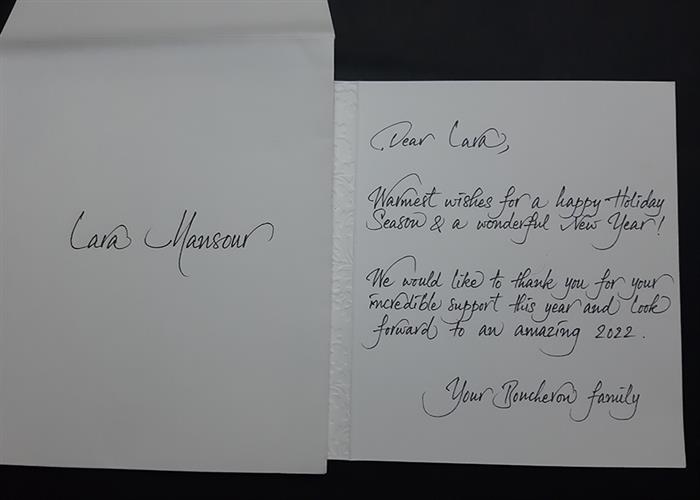 Lara Mansour
Dear Lara,
Warmest wishes for a happy Holiday
Season & a wonderful New Year!
We would like to thank you for your
incredible support this year and look
forward to an amazing 2022.
Your Boucheron family